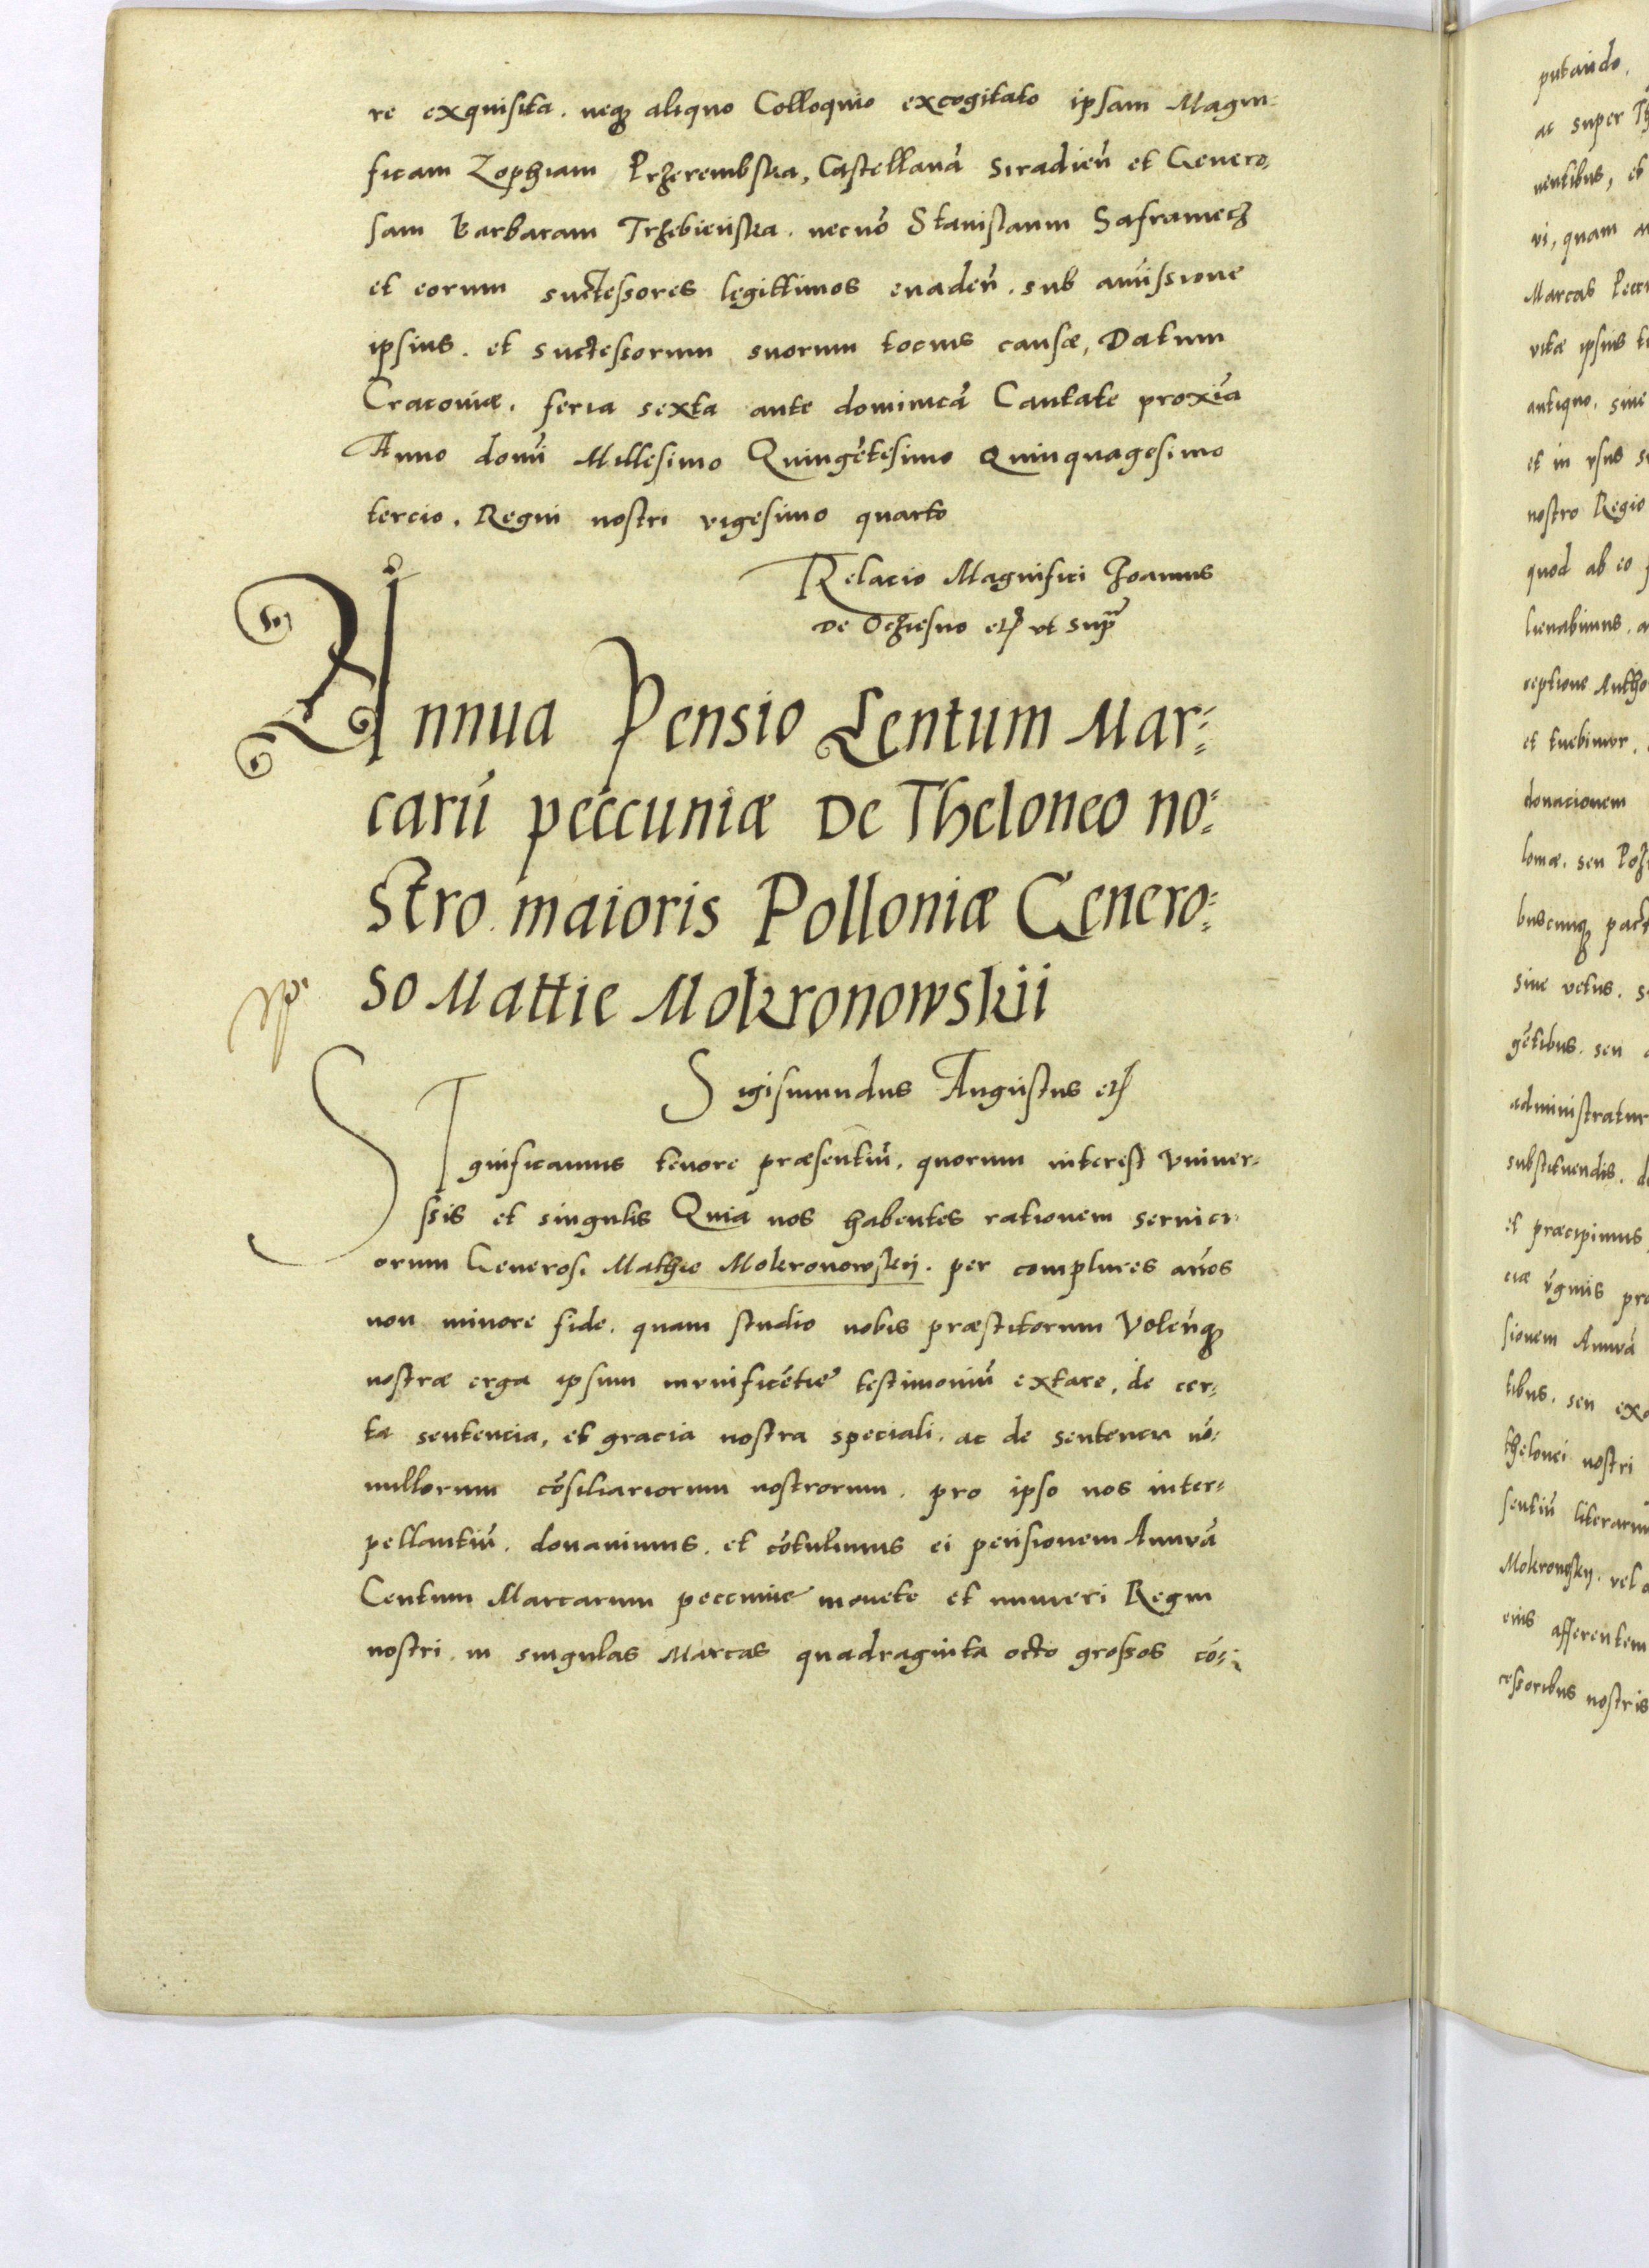 re exquisita. neqꝫ aliquo Colloquio excogitato ipsam Magni-
ficam Zophiam Przerembska, Castellanā Siradień et Genero,
sam Barbaram Trzebieńska. necnō Stanislaum Safraniecz
et eorum successores legittimos euadeń. sub amissione
ipsius. et successorum suorum tocius causæ, Datum
Cracouiæ. feria sexta ante dominicā Cantate proxīa
Anno domī Millesimo Quingētesimo Quinquagesimo
tercio. Regni nostri vigesimo quarto
Relacio Magnifici Joannis
De Ocziesno etc ut supr̄a
Annua Pensio Centum Mar:
carū peccuniæ De Theloneo no:
stro maioris Polloniæ Genero:
so Mattie Mokronowskii
Sigismundus Augustus etc
Significamus tenore præsentiū, quorum interest Vniuer-
ssis et singulis Quia nos habentes rationem seruici
orum Generosi Mathie Mokronowskij. per complures ańos
non minore fide. quam studio nobis præstitorum Voleńqꝫ
nostræ erga ipsum munificētie testimoniū extare, de cer-
ta sentencia, et gracia nostra speciali. ac de sentencia nō-
nullorum cōsiliariorum nostrorum. pro ipso nos inter-
pellantiū. donauimus. et cōtulimus ei pensionem Annuā
Centum Marcarum peccunie monete et numeri Regni
nostri. in singulas Marcas quadraginta octo grossos cō-
putando.
ac super
uentibus, et
vi, quam
Marcas
vitæ ipsius
antiquo. siue
et in vsus
nostro Regio
quod ab eo
lienabimus.
ceptione
et tuebimur.
donacionem
lomæ. seu
buscunqꝫ
siue vetus.
gētibus. seu
administratur
substituendis.
et præcipimus
ciæ
sionem Annuā
tibus. seu
thelonei nostri
sentiū literarum
vel
eius afferentem
cessoribus nostris